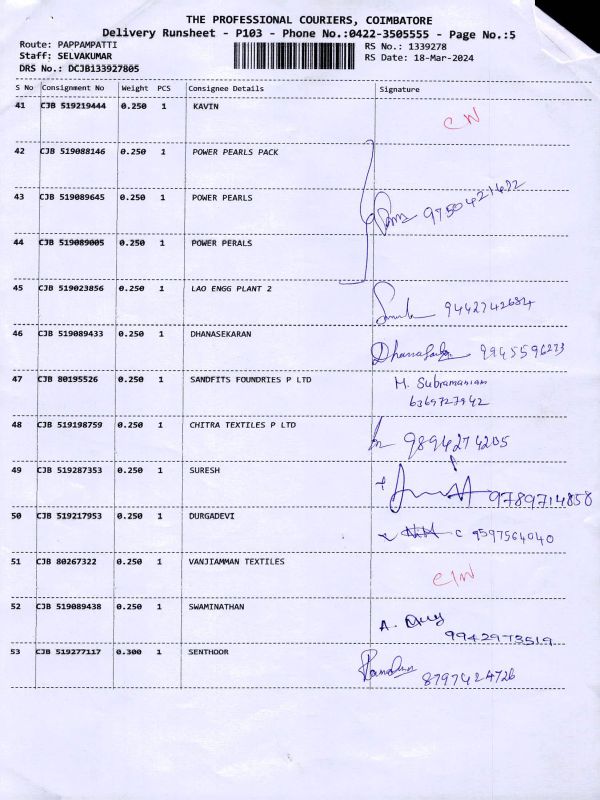 THE PROFESSIONAL COURIERS, COIMBATORE
Delivery Runsheet - P103 - Phone No.:0422-3505555 - Page No.:5
Route: PAPPAMPATTI RS No.: 1339278
Staff: SELVAKUMAR RS Date: 18-Mar-2024
DRS No.: DCJB133927805
S No Consignment No Weight PCS Consignee Details Signature
41 CJB 519219444 0.250 1 KAVIN
42 CJB 519088146 0.250 1 POWER PEARLS PACK
43 CJB 519089645 0.250 1 POWER PEARLS
44 CJB 519089005 0.250 1 POWER PERALS
45 CJB 519023856 0.250 1 LAO ENGG PLANT 2
46 CJB 519089433 0.250 1 DHANASEKARAN
47 CJB 80195526 0.250 1 SANDFITS FOUNDRIES P LTD M. Subramanian
6369727942
48 CJB 519198759 0.250 1 CHITRA TEXTILES P LTD 9894274205
49 CJB 519287353 0.250 1 SURESH 9789714858
50 CJB 519217953 0.250 1 DURGADEVI 9597564040
51 CJB 80267322 0.250 1 VANJIAMMAN TEXTILES
52 CJB 519089438 0.250 1 SWAMINATHAN
9942973519
53 CJB 519277117 0.300 1 SENTHOOR 8797424726